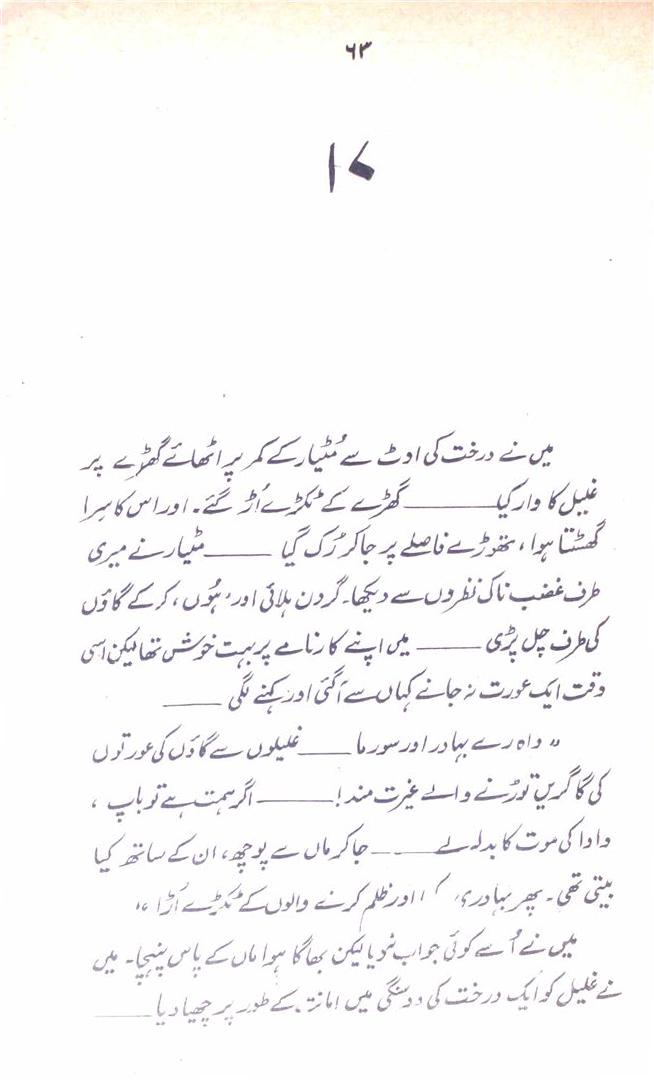 ۶۳
۱۰
میں نے درخت کی اوٹ سے مُٹیار کے کمر پر اٹھائے گھڑے پر
غلیل کا وار کیا ــــــــ گھڑے کے ٹکڑے اُڑ گئے۔ اور اس کا سِرا
گھسٹتا ہوا، تھوڑے فاصلے پر جا کر رُک گیا ــــــــ مٹیار نے میری
طرف غضب ناک نظروں سے دیکھا۔ گردن ہلائی اور ’ہُوں‘ کر کے گاؤں
کی طرف چل پڑی ــــــــ میں اپنے کارنامے پر بہت خوش تھا لیکن اسی
وقت ایک عورت نہ جانے کہاں سے آ گئی اور کہنے لگی ــــــــ
”واہ رے بہادر اور سورما ــــــــ غلیلوں سے گاؤں کی عورتوں
کی گاگریں توڑنے والے غیرت مند! ــــــــ اگر ہمت ہے تو باپ،
دادا کی موت کا بدلہ لے ــــــــ جا کر ماں سے پوچھ، ان کے ساتھ کیا
بیتی تھی۔ پھر بہادری اور ظلم کرنے والوں کے ٹکڑے اُڑا“
میں نے اُسے کوئی جواب نہ دیا لیکن بھاگا ہوا ماں کے پاس پہنچا۔ میں
نے غلیل کو ایک درخت کی میں امانت کے طور پر چھپا دیا ــــــــ